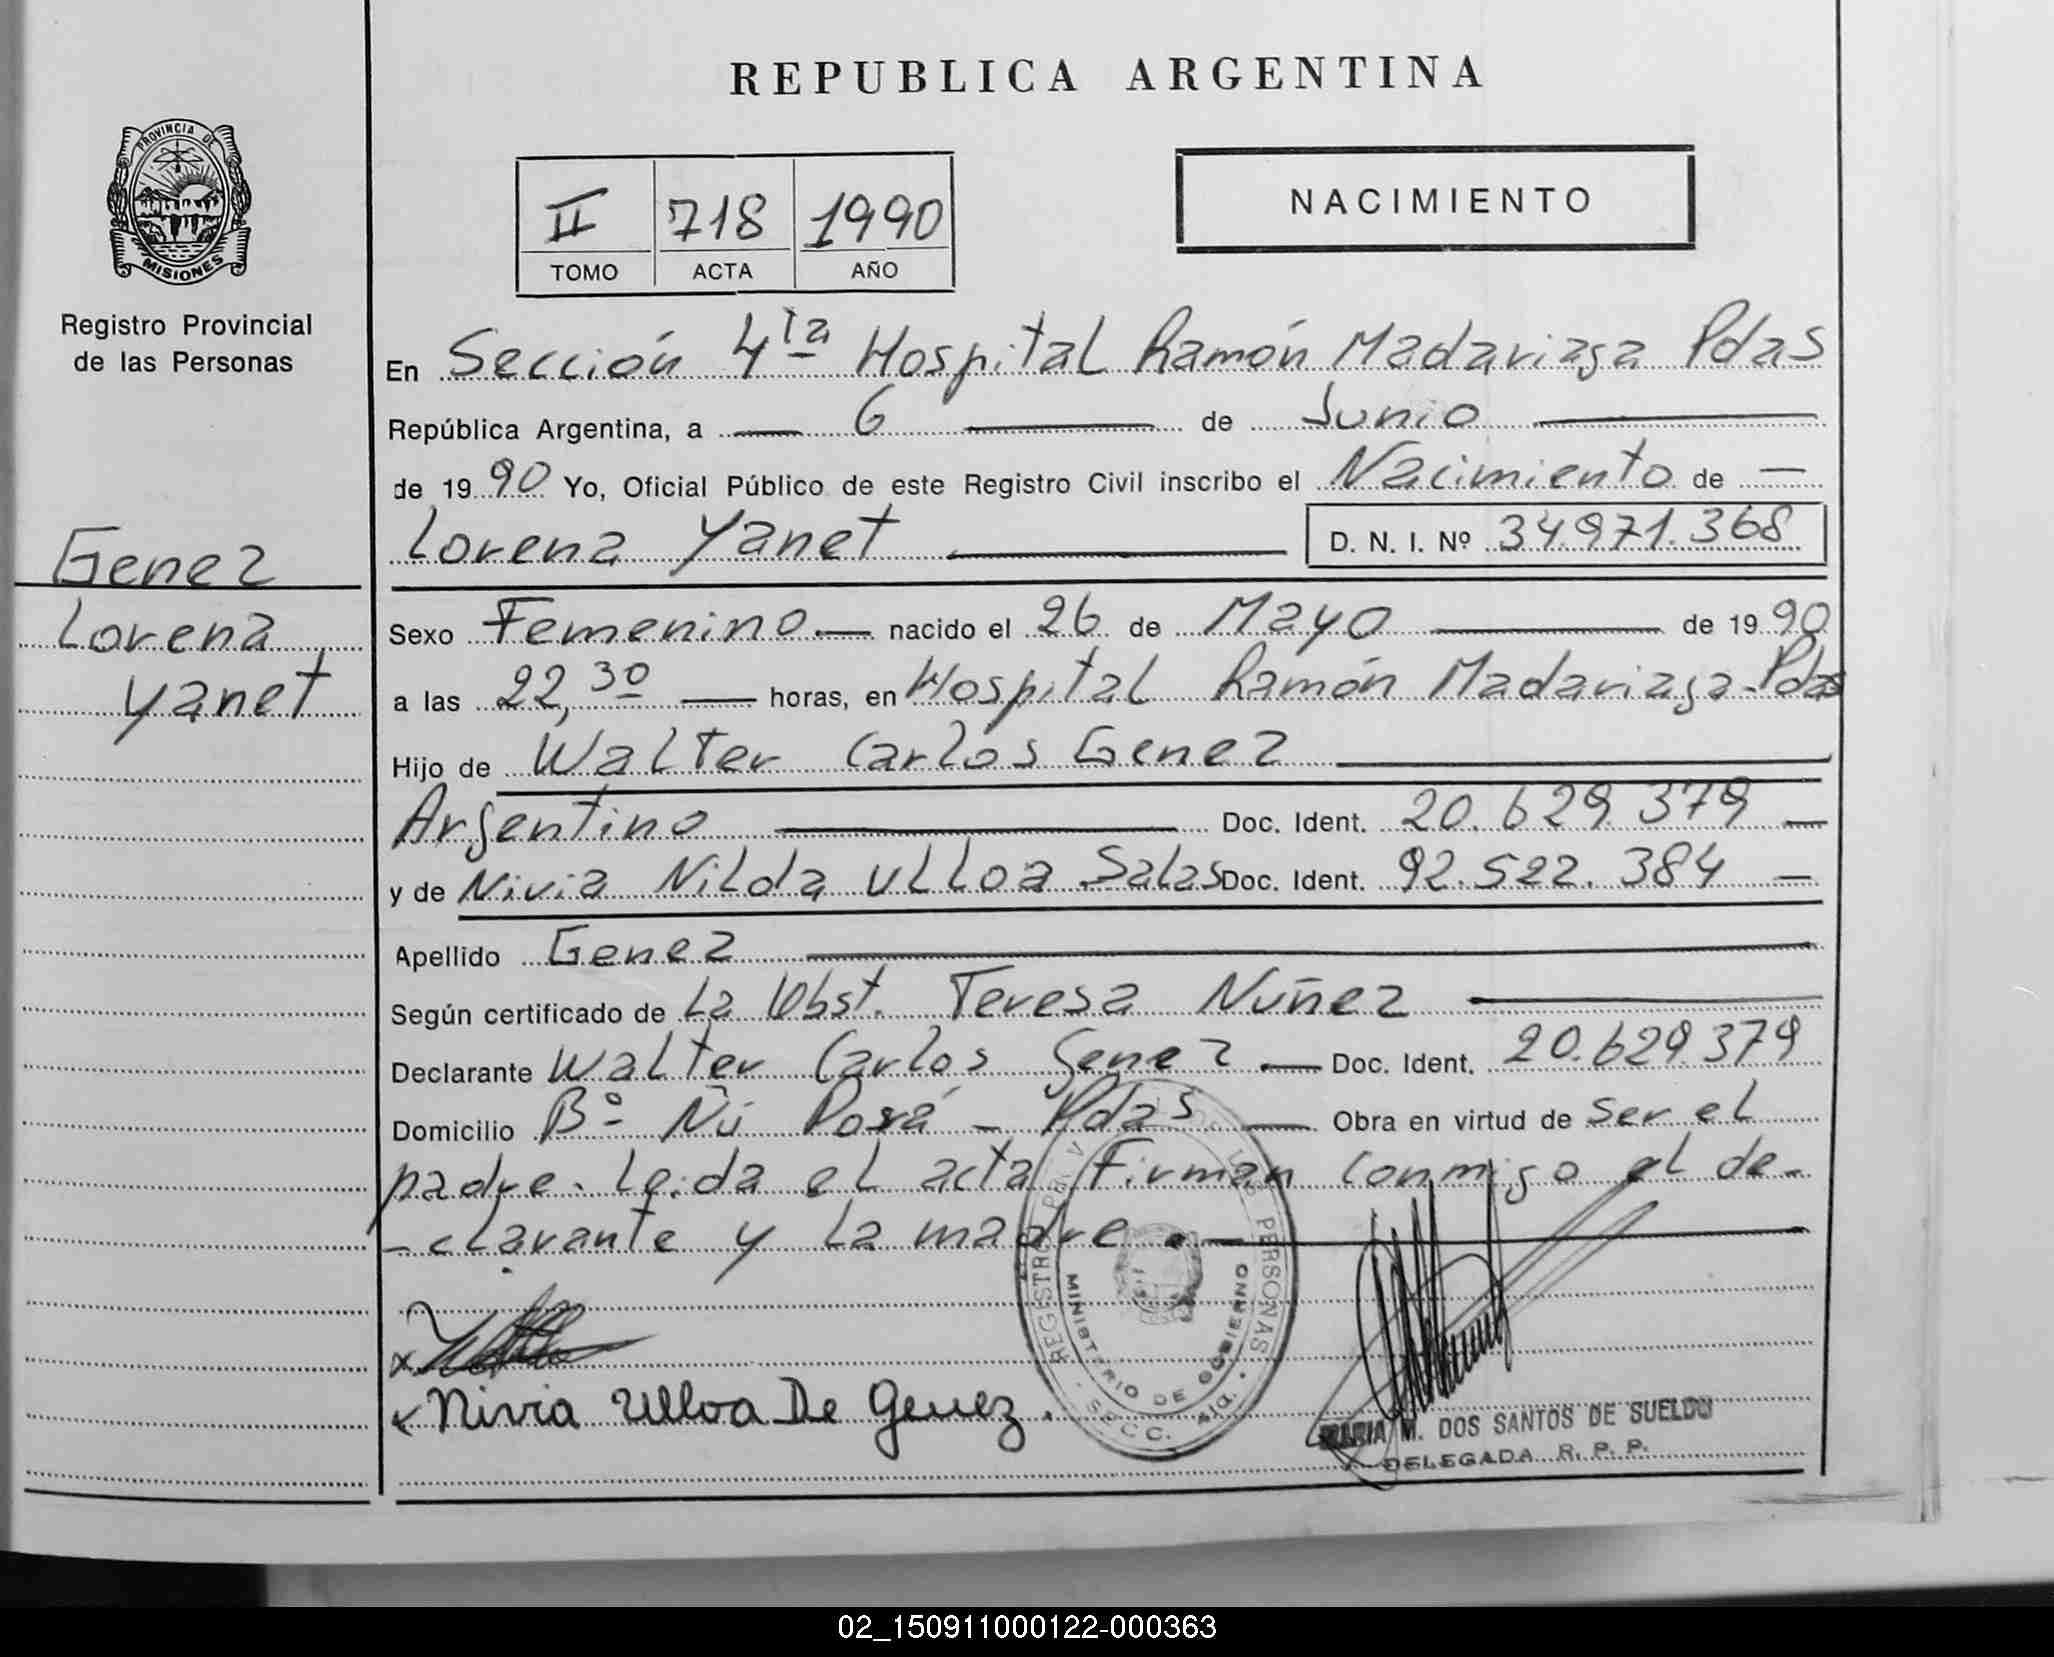 REPUBLICA ARGENTINA
PROVINCIA DE
MISIONES
Registro Provincial
de las Personas
II 718 1990
TOMO ACTA AÑO
NACIMIENTO
En Sección 4ta Hospital Ramón Madariaga Pdas
República Argentina, a — 6 — de Junio —
de 1990 Yo, Oficial Público de este Registro Civil inscribo el Nacimiento de —
Lorena Yanet — D. N. I. Nº 34.971.368
Genez
Lorena
Yanet
Sexo Femenino — nacido el 26 de Mayo — de 1990
a las 22,30 — horas, en Hospital Ramón Madariaga-Pdas
Hijo de Walter Carlos Genez —
Argentino — Doc. Ident. 20.629.379 —
y de Nivia Nilda Ulloa Salas Doc. Ident. 92.522.384 —
Apellido Genez —
Según certificado de La Obst. Teresa Nuñez —
Declarante Walter Carlos Genez — Doc. Ident. 20.629.379
Domicilio Bº Ñú Porá - Pdas — Obra en virtud de ser el
padre. Leida el acta firman conmigo el de-
-clarante y la madre. —
x
x Nivia Ulloa De Genez.
REGISTRO PROV. DE LAS PERSONAS
MINISTERIO DE GOBIERNO
MARIA M. DOS SANTOS DE SUELDO
DELEGADA R. P. P.
02_150911000122-000363